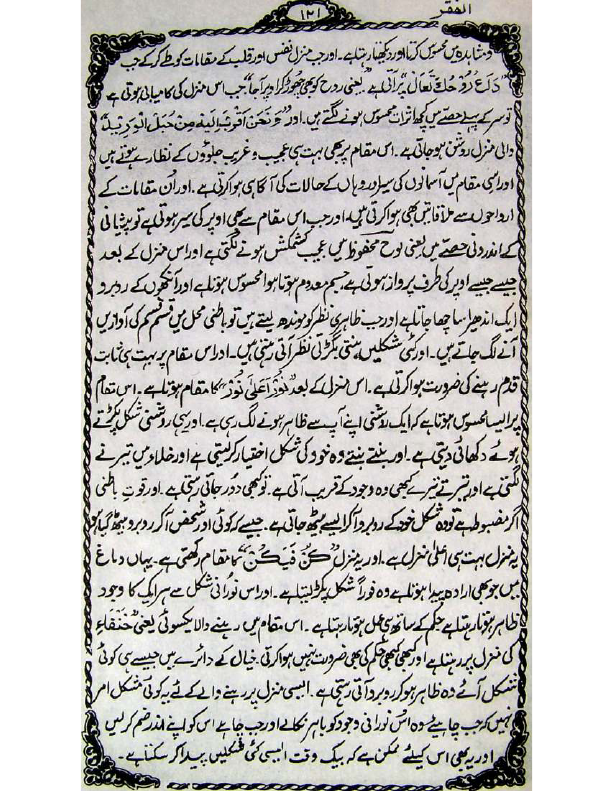 الفقر
۱۲۱
ومشاہدہ میں محسوس کرتا اور دیکھتا رہتا ہے۔ اور جب منزل نفس اور قلب کے مقامات کو طے کر کے جب
"دَعْ رُوْحَكَ تَعَالْ" پر آتی ہے یعنی روح کو بھی چھوڑ کر اوپر آجا" جب اس منزل کی کامیابی ہوتی ہے
تو سر کے پہلے حصے میں کچھ اثرات محسوس ہونے لگتے ہیں۔ اور "وَنَحْنُ اَقْرَبُ اِلَيْهِ مِنْ حَبْلِ الْوَرِيْدِ"
والی منزل روشن ہو جاتی ہے۔ اس مقام پر بھی بہت ہی عجیب و غریب جلووں کے نظارے ہوتے ہیں
اور اسی مقام میں آسمانوں کی سیر اور وہاں کے حالات کی آگاہی ہوا کرتی ہے۔ اور اُن مقامات کے
ارواحوں سے ملاقاتیں بھی ہوا کرتی ہیں، اور جب اس مقام سے بھی اوپر کی سیر ہوتی ہے تو پیشانی
کے اندرونی حصے میں یعنی لوح محفوظ میں عجیب کشمکش ہونے لگتی ہے اور اس منزل کے بعد
جیسے جیسے اوپر کی طرف پرواز ہوتی ہے، جسم معدوم ہوتا ہوا محسوس ہوتا ہے اور آنکھوں کے روبرو
ایک اندھیرا سا چھا جاتا ہے اور جب ظاہری نظر کو موندھ لیتے ہیں تو باطنی محل میں قسم قسم کی آوازیں
آنے لگ جاتے ہیں۔ اور کئی شکلیں بنتی بگڑتی نظر آتی رہتی ہیں۔ اور اس مقام پر بہت ہی ثابت
قدم رہنے کی ضرورت ہوا کرتی ہے۔ اس منزل کے بعد "نُوْرٌ اَعْلٰی نُوْرٌ" کا مقام ہوتا ہے۔ اس مقام
پر ایسا محسوس ہوتا ہے کہ ایک روشنی اپنے آپ سے ظاہر ہونے لگ رہی ہے۔ اور یہی روشنی شکل پکڑتے
ہوئے دکھائی دیتی ہے۔ اور بنتے بنتے وہ خود کی شکل اختیار کر لیتی ہے اور خلاء میں تیرنے
لگتی ہے اور تیرتے تیرتے کبھی وہ وجود کے قریب آتی ہے۔ تو کبھی دور جاتی رہتی ہے۔ اور قوت باطنی
اگر مضبوط ہے تو وہ شکل خود کے روبرو آکر ایسے بیٹھ جاتی ہے۔ جیسے کہ کوئی اور شخص آکر روبرو بیٹھ گیا ہو
یہ منزل بہت ہی اعلیٰ منزل ہے۔ اور یہ منزل "كُنْ فَيَكُنْ" کا مقام رکھتی ہے۔ یہاں دماغ
میں جو بھی ارادہ پیدا ہوتا ہے وہ فوراً شکل پکڑ لیتا ہے۔ اور اس نورانی شکل سے ہر ایک کا وجود
ظاہر ہوتا رہتا ہے حکم کے ساتھ ہی عمل ہوتا رہتا ہے۔ اس مقام میں رہنے والا یکسوئی یعنی خنفاء
کی منزل پر رہتا ہے اور کبھی کبھی حکم کی بھی ضرورت نہیں ہوا کرتی۔ خیال کے دائرے میں جیسے ہی کوئی
شکل آئے وہ ظاہر ہو کر روبرو آتی رہتی ہے۔ ایسی منزل پر رہنے والے کے لئے یہ کوئی مشکل امر
نہیں کہ جب چاہے وہ اس نورانی وجود کو باہر نکالے اور جب چاہے اس کو اپنے اندر ضم کر لیں
اور یہ بھی اس کیلئے ممکن ہے کہ بیک وقت ایسی کئی شکلیں پیدا کر سکتا ہے۔